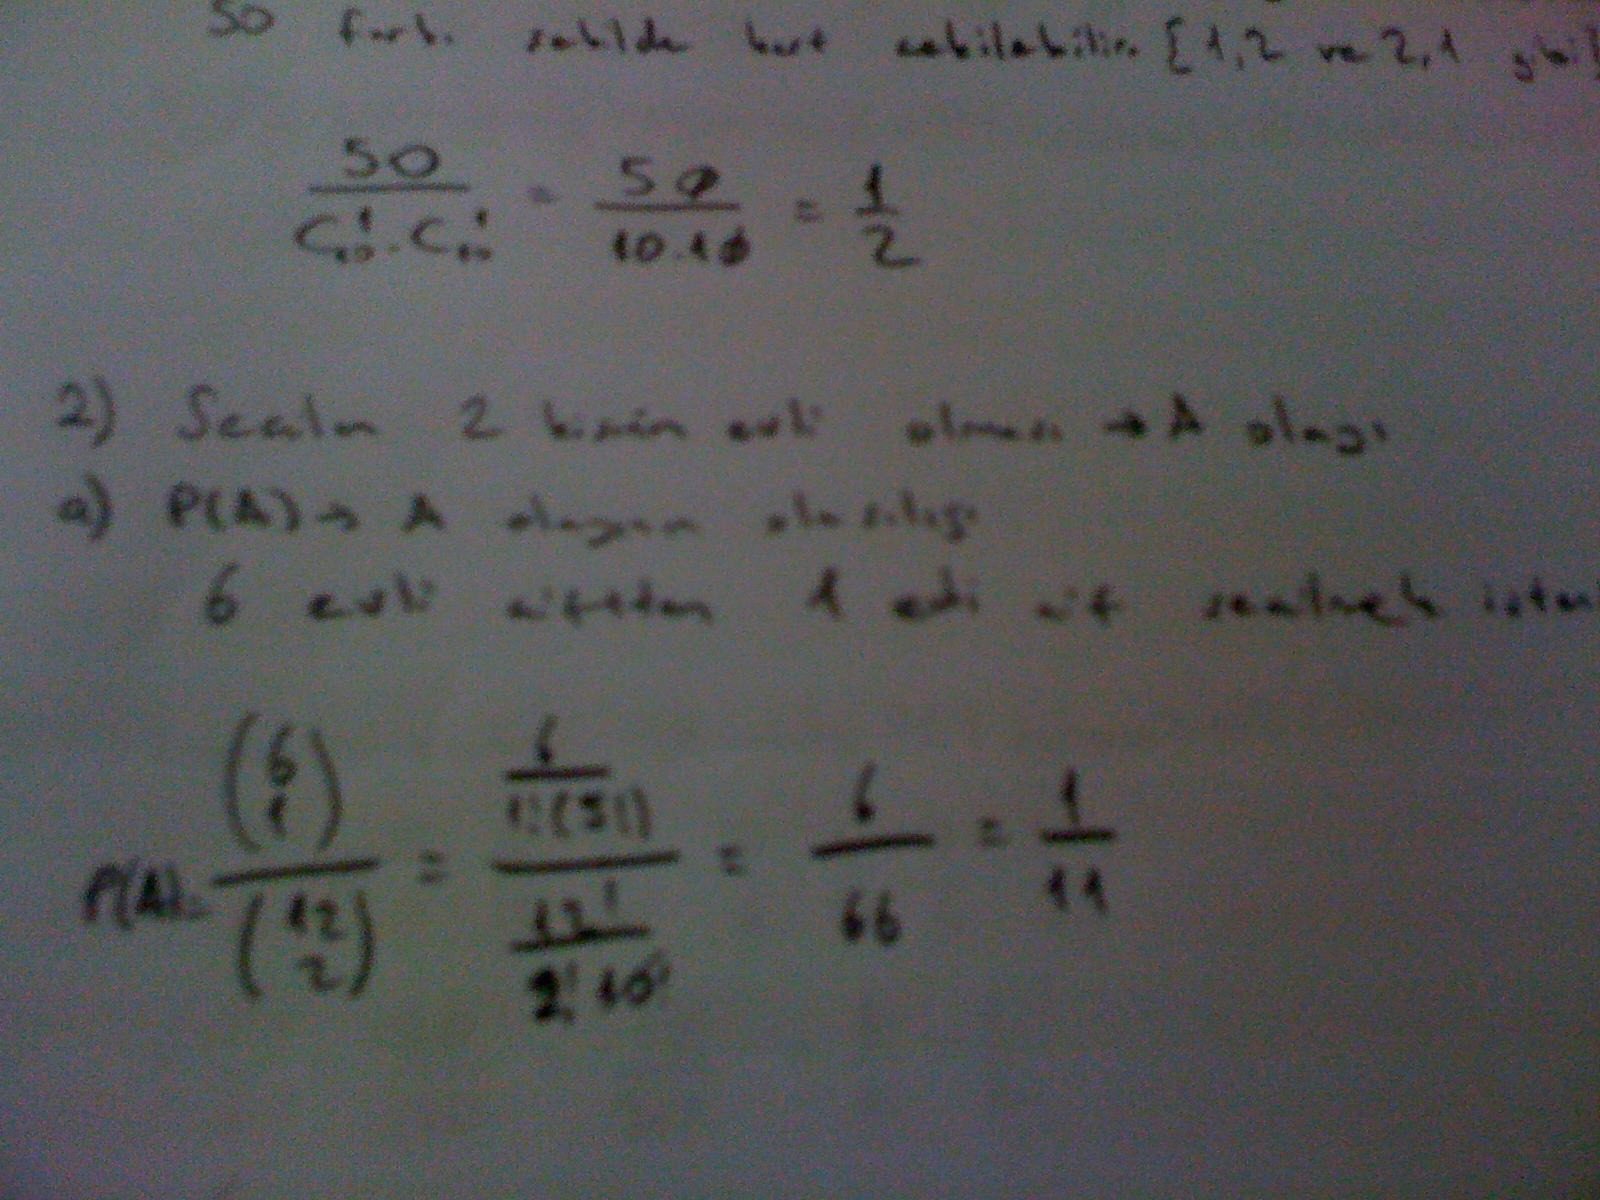 50 farklı şekilde kart çekilebilir. [1,2 ve 2,1 gibi]
50 / C₁₀¹ . C₁₀¹ = 50 / 10.10 = 1/2
2) Seçilen 2 kişinin evli olması → A olayı
a) P(A) → A olayının olasılığı
6 evli çiftten 1 evli çift seçilmek
P(A) = (6 1) / (12 2) = (6 / 1!(5!)) / (12! / 2! 10!) = 6/66 = 1/11